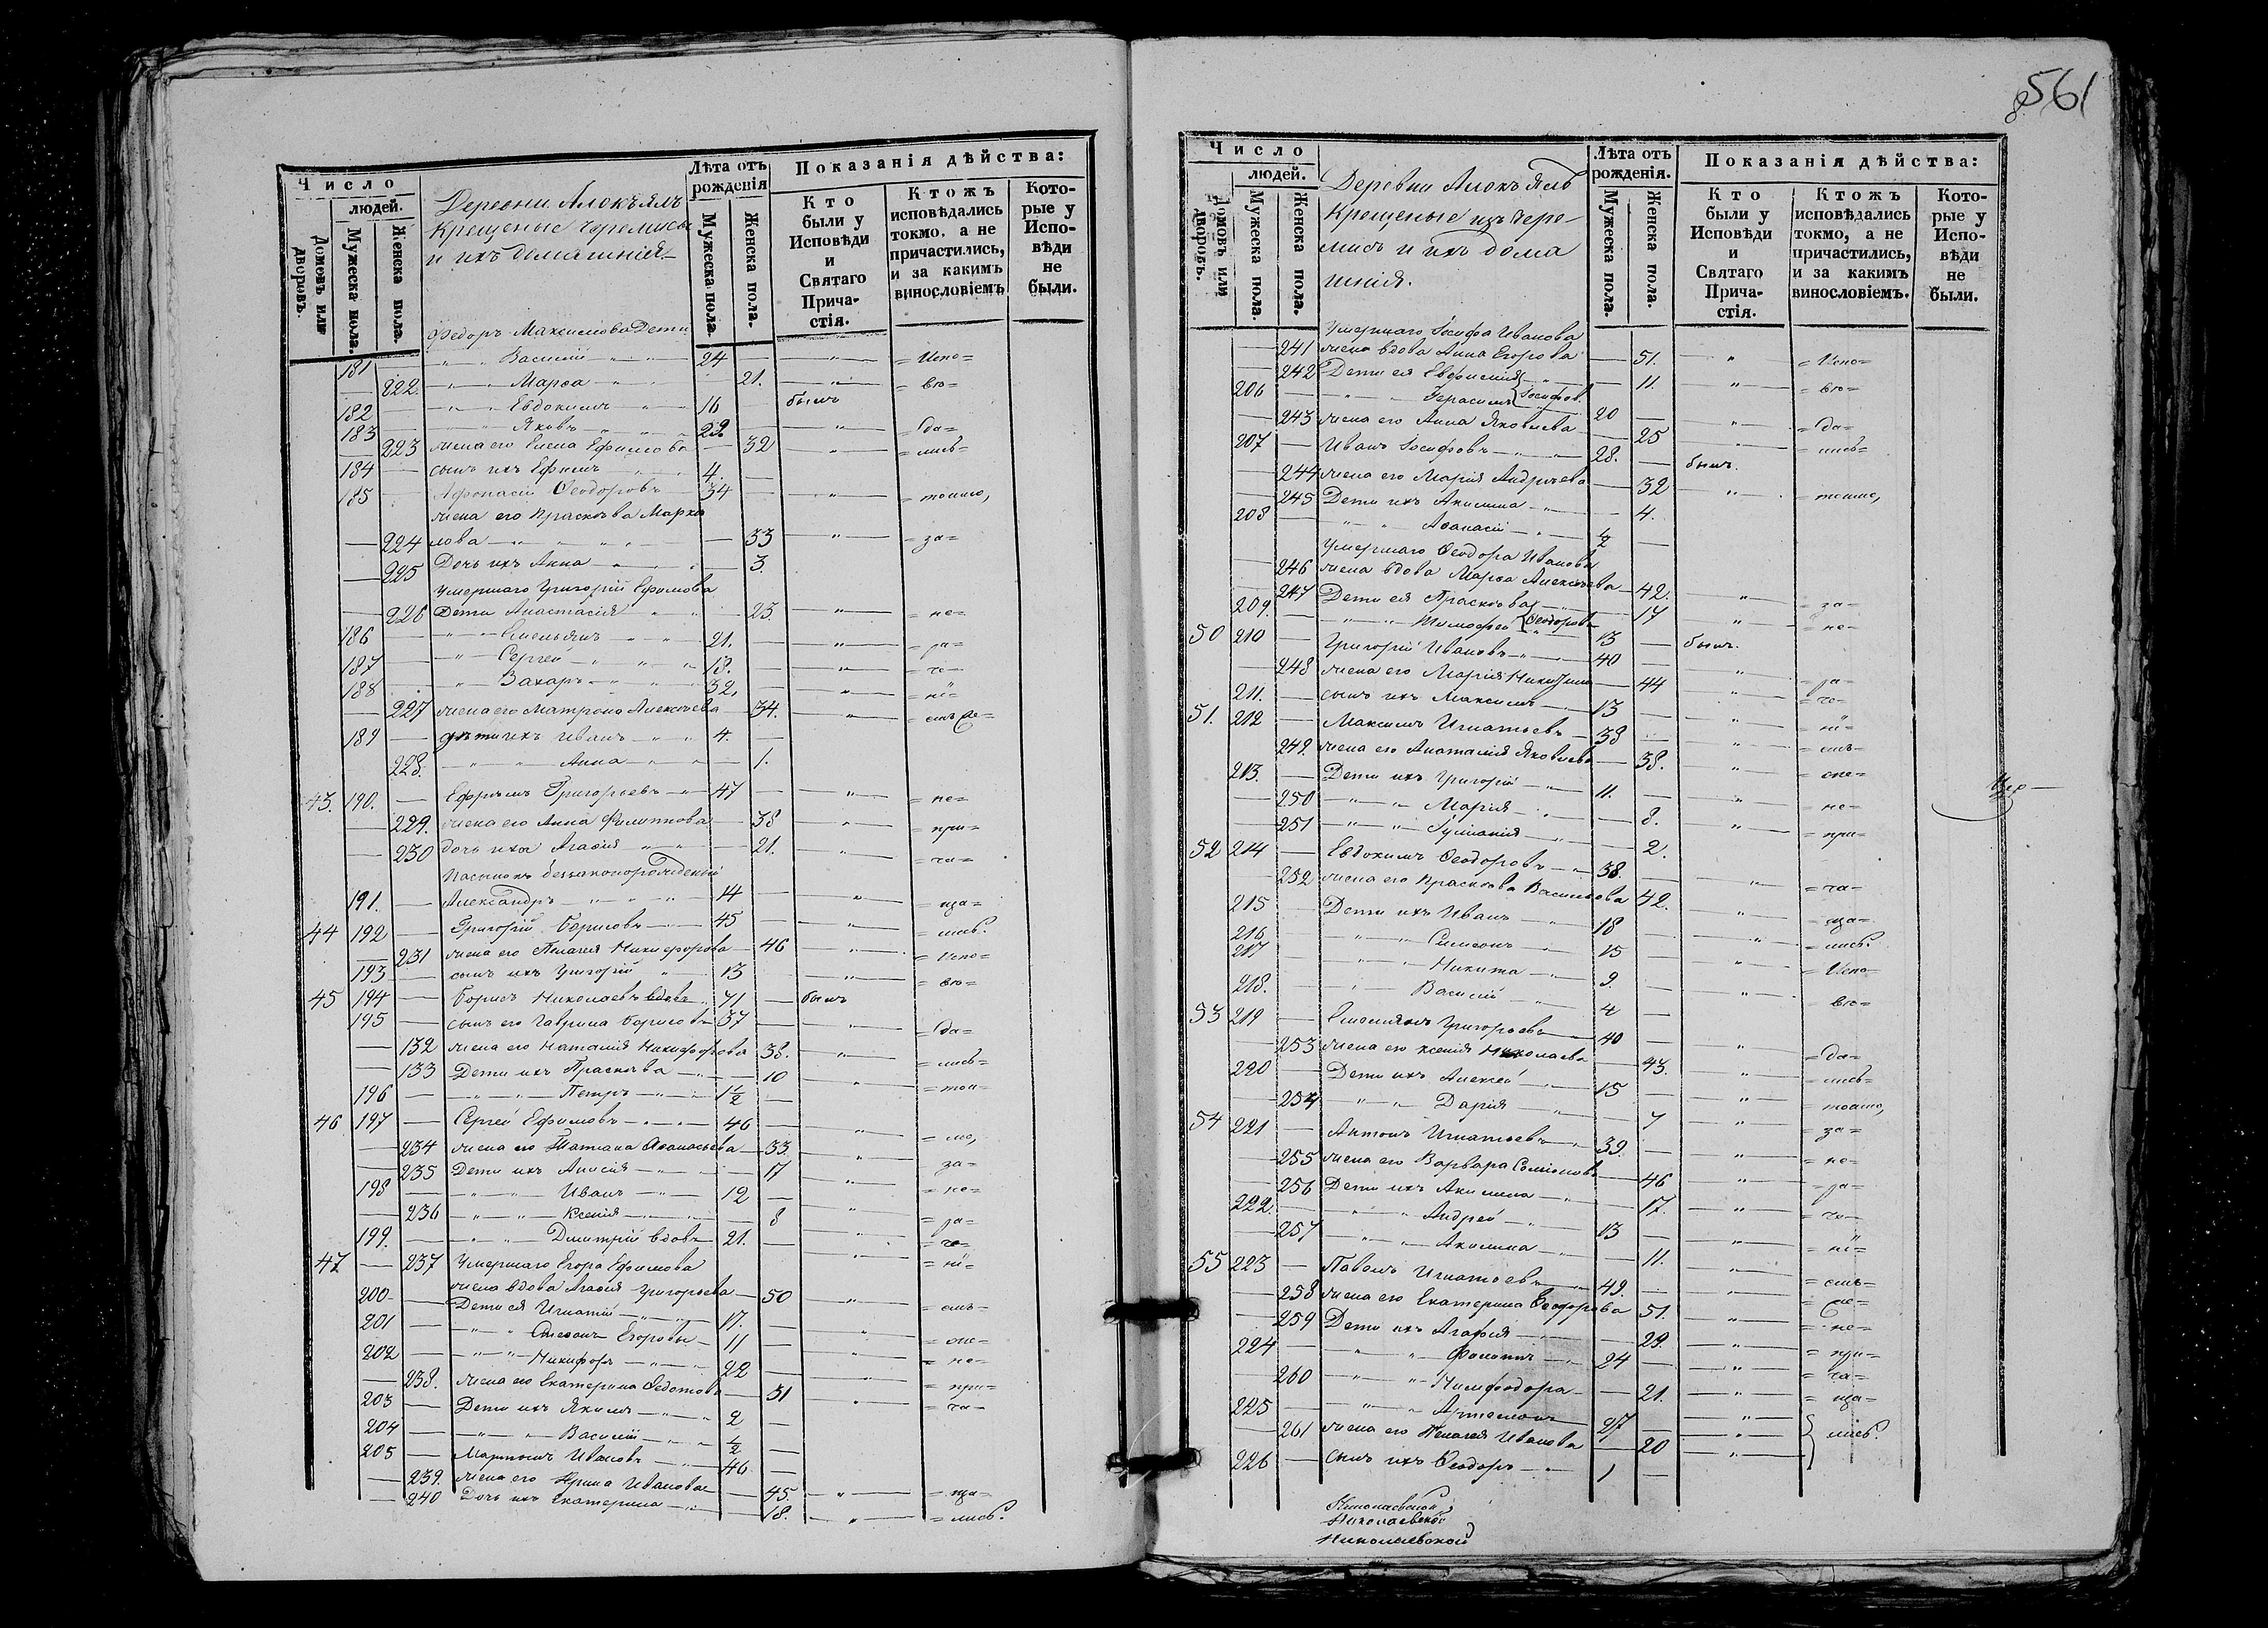 561
Число
людей.
Домовъ или дворовъ.
Мужеска пола.
Женска пола.
Деревни Алокъялъ
Крещеные Черемисы
и ихъ домашнія
Лѣта отъ рожденія
Мужеска пола.
Женска пола.
Показанія дѣйства:
Кто были у Исповѣди и Святаго Причастія.
Ктожъ исповѣдались токмо, а не причастились, и за какимъ винословіемъ
Которые у Исповѣди не были.
Федоръ Максимова Дети
181 — " — " Василій — " — 24 — " = Испо=
— 222. — " — " Марѳа — " — 21. — " = вѣ=
182 — " — " Евдокимъ — " — 16 былъ
183 — " — " Яковъ — " — " = да=
— 223 жена его Елена Ефимова — 32 — " = лись=
184 — сынъ ихъ Ефимъ — 4. —
185 — Афонасій Ѳеодоровъ — 34 — " = токмо,
жена его Прасковья
— 224 лова — " — " — 33 — " = за=
— 225 Дочь ихъ Анна — " — 3.
умершаго Григорій Ефимова
— 226 Дети Анастасія — " — 23. — " = не=
186 — " — Емельянъ — " — 21. — " = ра=
187 — " — Сергей — " — 18. — " = че=
188 — " — Захаръ — " — 32. — " = ні=
— 227 жена его Матрена Алексѣева — 34. — "
189 — дѣти ихъ Иванъ — " — 4. —
228. — " — " Анна — " — 1.
43. 190. — Ефремъ Григорьевъ — " 47 — " = не=
— 229. жена его Анна Филиппова — 38 — " = при=
— 230 дочь ихъ Агафія — " — 21. — " = ча=
Пасынокъ беззаконорожденный
191. — Александръ — " — " — 14 — " = ща=
44 192 — Григорій Борисовъ — 45 — " = лись.
— 231 жена его Пелагія Никифорова — 46 — " = Испо=
193 — сынъ ихъ Григорій " — 13 — " = вѣ=
45 194 — Борисъ Николаевъ вдовъ " 71 — былъ
195 — сынъ его Гаврила Борисовъ — 37 — " = да=
— 132 жена его Наталія Никифорова 38. — " = лись=
— 133 Дети ихъ Прасковья — " — 10 — " = ток=
196 — " — " Петръ — " — 1½ —
46 197 — Сергей Ефимовъ — " — 46 — " = мо,
— 234 жена его Татіана Аѳанасьева — 33. — " за=
— 235 Дети ихъ Анисія — " — 17 — " = не=
198 — " — " Иванъ — " — 12 —
— 236 — " — " Ксенія — " — 8 — " = ра=
199. — " — " Димитрій вдовъ — 21. — " = че=
47 — 237 умершаго Егора Ефимова = ні=
жена вдова Агафія Григорьева — 50 — " = емъ=
200 — Дети ея Игнатій — " — 17. —
201 — " — " Степанъ Егоровы — 11 — " = опе=
202 — " — " Никифоръ — " — 22 — " = не=
— 238. жена его Екатерина Ѳедотова — 31 — " = при=
203 — Дети ихъ Якимъ — " — 2 — = ча=
204 — " — " Василій — " — ½ —
205 — Мартынъ Ивановъ — 46 —
— 239. жена его Ирина Иванова — 45. — " = ща=
— 240 Дочь ихъ Екатерина — " — 18. — " = лись.
Число
людей.
Домовъ или дворовъ.
Мужеска пола.
Женска пола.
Деревни Алокъ Ялъ
Крещеные изъ Чере-
мисъ и ихъ дома
шнія.
Лѣта отъ рожденія.
Мужеска пола.
Женска пола.
Показанія дѣйства:
Кто были у Исповѣди и Святаго Причастія.
Ктожъ исповѣдались токмо, а не причастились, и за какимъ винословіемъ.
Которые у Исповѣди не были.
Умершаго Іосифа Иванова
— 241 жена вдова Анна Егорова — 51. — " = Испо=
— 242 Дети ея Евфимія — " — 11. — " = вѣ=
206 — " — Герасимъ Іосифов. 20 —
— 243 жена его Анна Яковлева — 25 — " = да=
207 — Иванъ Іосифовъ — " — 28. — " = лись=
— 244 жена его Марія Андреева — 32 былъ.
— 245 Дети ихъ Акилина — " — 4. — " = токмо,
208 — " — " Аѳанасій — " ½ —
умершаго Ѳеодора Иванова
— 246 жена вдова Марѳа Алексѣева — 42. — " = за=
— 247 Дети ея Прасковья — 17 — " = не=
209. — " — " Тимоѳей Ѳеодоров 13 — былъ.
50 210 — Григорій Ивановъ — " — 40 — "
— 248 жена его Марія Никитина — 44 — " = ра=
211. — сынъ ихъ Максимъ — " 13 — " = че=
51. 212 — Максимъ Игнатьевъ — 38 — " = ні=
— 249. жена его Яковлева — 38. — " = емъ=
213. — Дети ихъ Григорій — " — 11. — " = опе=
— 250 — " — " Марія — " — 8. — " = не=
— 251 — " — " Іуліанія — " — 2. — " = при=
52 214 — Евдокимъ Ѳеодоровъ — " 38. — "
— 252 жена его Прасковья Васильева 42. — " = ча=
215 — Дети ихъ Иванъ — " 18 — " = ща=
216 — " — " Симеонъ — " 15 — " = лись.
217 — " — " Никита — " 9. — " = Испо=
218. — " — " Василій — " 4 — = вѣ=
53 219 — Емельянъ Григорьевъ — 40 — " = да=
— 253 жена его Ксенія Николаева — 43. — " = лись=
220 — Дети ихъ Алексей — " 15 — " = токмо,
— 254 — " — " Дарія — " — 7 — " = за=
54 221 — Антонъ Игнатьевъ — " 39. — " = не=
— 255 жена его Варвара — 46 — " = ра=
— 256 Дети ихъ Акилина — " — 17. — " = че=
222. — " — " Андрей — " 13 — " = ні=
— 257 — " — " Акилина — " — 11. — "
55 223 — Павелъ Игнатьевъ — " 49. — " = емъ=
— 258 жена его Екатерина Ѳеодорова 51. — " = не=
— 259 Дети ихъ Агафія — " — 29. — " = при=
224 — " — " Филиппъ — " 24 — " = ча=
— 260 — " — " Нимфодора — — 21. — " = ща=
225 — " — " Артемонъ 27 — "
— 261 жена его Пелагея Иванова — 20 — " лись.
226 — сынъ ихъ Ѳеодоръ — " 1 —
Николаевской
Николаевской
Николаевской